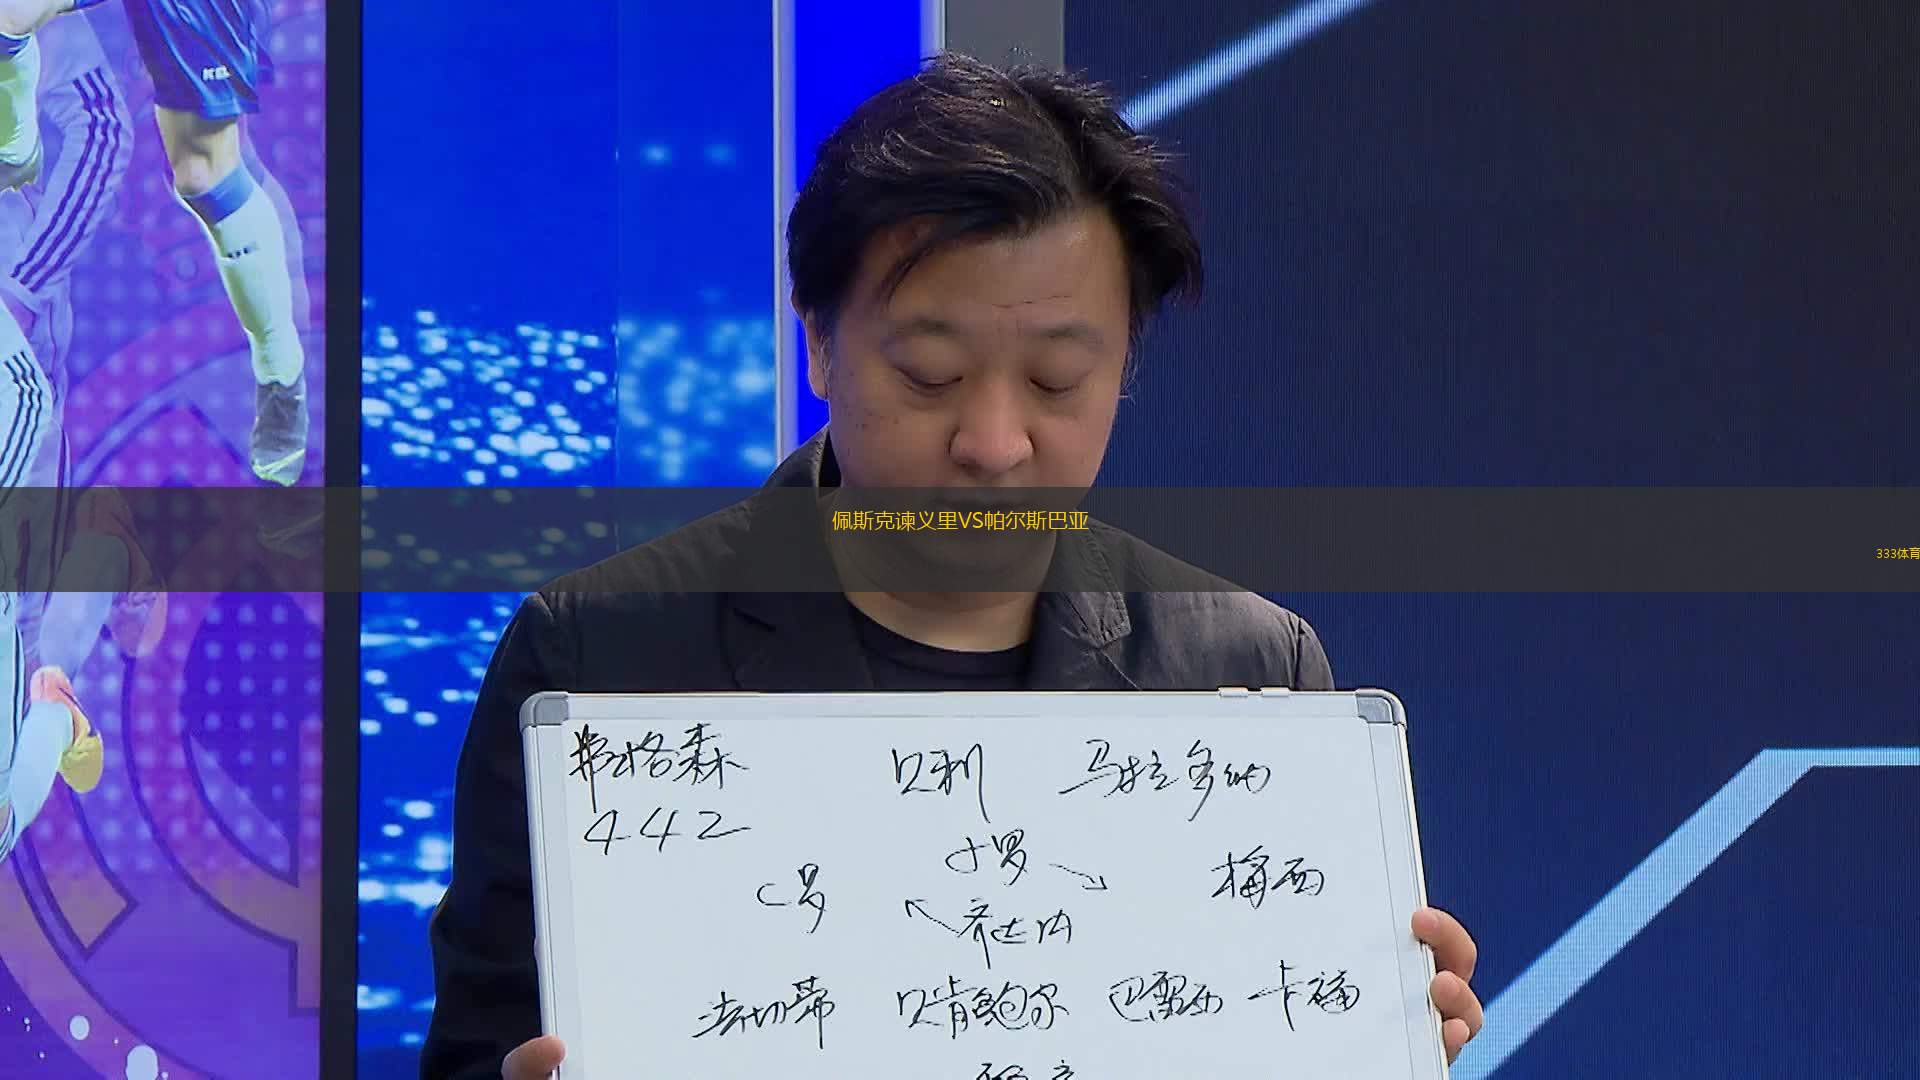 佩斯克谏义里VS帕尔斯巴亚
333体育
弗格森 贝利 马拉多纳
442
小罗
C罗 梅西
齐达内
法切蒂 贝肯鲍尔 巴雷西 卡福